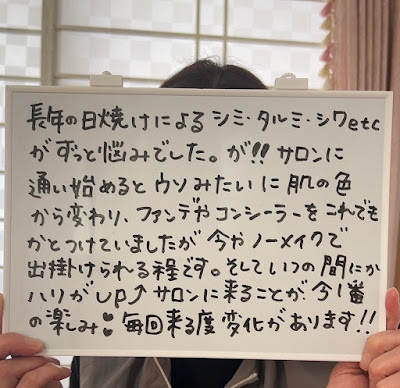 長年の日焼けによる シミ・タルミ・シワetc
が ずっと悩みでした。が!! サロンに
通い始めると ウソみたいに 肌の色
から変わり、ファンデや コンシーラーを これでも
かとつけていましたが 今や ノーメイクで
出掛けられる程です。そして いつの間にか
ハリが UP↑ サロンに来ることが 今1番
の楽しみ♥ 毎回来る度 変化が あります!!